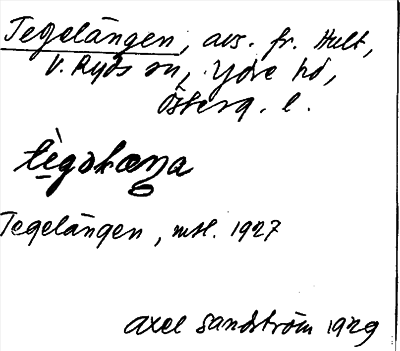 Tegelängen, avs. fr. Hult,
V. Ryds sn, Ydre hd,
Österg. l.
Tegelängen, msl. 1927
Axel Sandström 1929